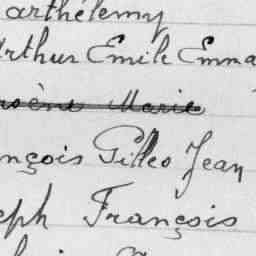 arthélemy
Arthur Emile Emma
rsène Marie
nçois Gilles Jean
eph François